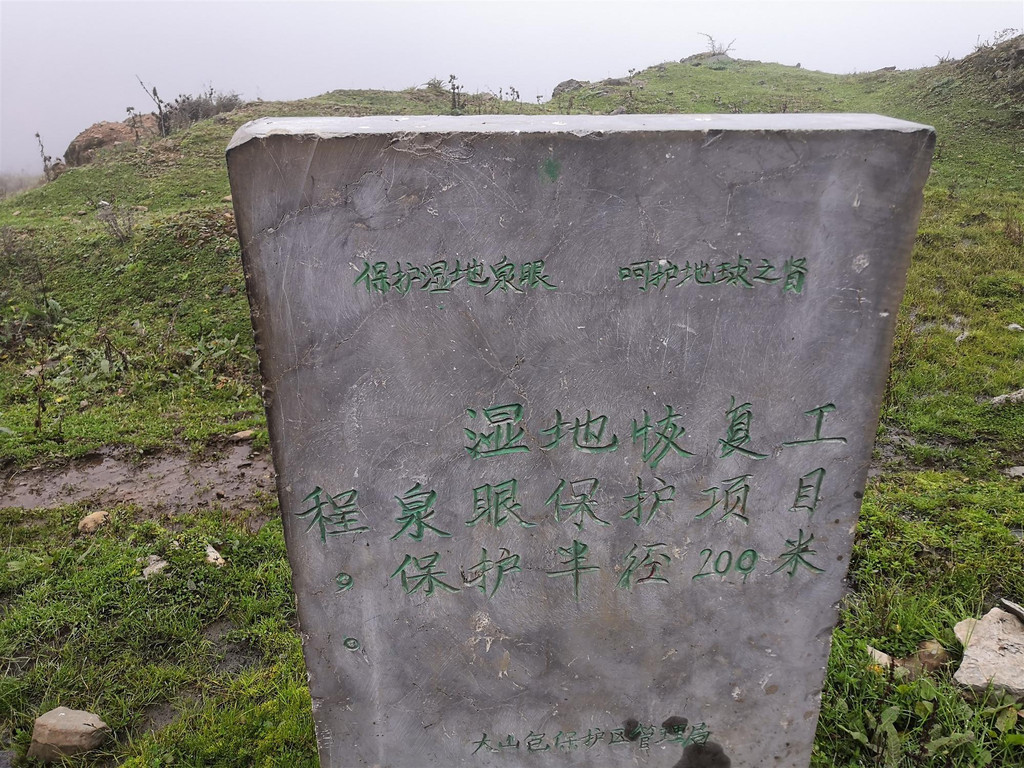 保护湿地泉眼 呵护地球之肾
湿地恢复工
程泉眼保护项目
，保护半径200米
。
大山包保护区管理局